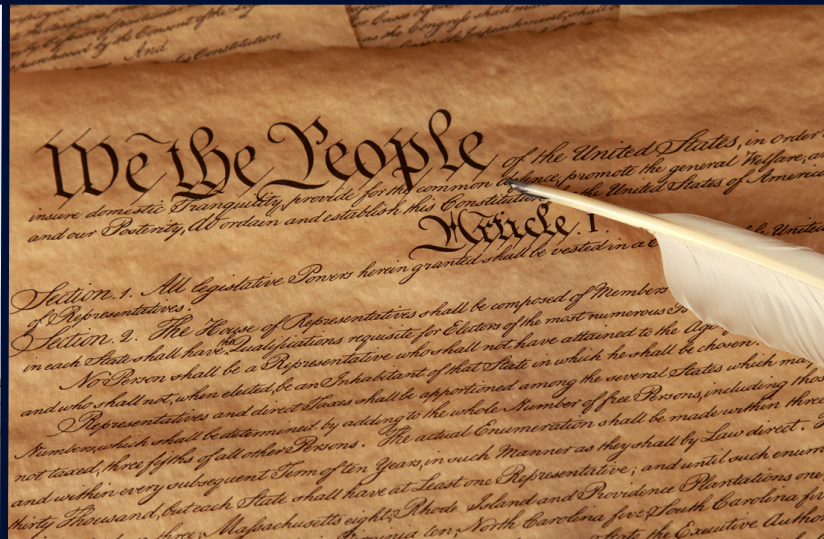 And
Constitution
as the Congress shall
We the People of the United States, in order
insure domestic Tranquility, provide for the common defence, promote the general Welfare, an
and our Posterity, do ordain and establish this Constitution the United States of America
Article. I.
Section. 1. All legislative Powers herein granted shall be vested in a United
of Representatives.
Section. 2. The House of Representatives shall be composed of Members
in each State shall have the Qualifications requisite for Electors of the most numerous
No Person shall be a Representative who shall not have attained to the Age
and who shall not, when elected, be an Inhabitant of that State in which he shall be chosen.
Representatives and direct Taxes shall be apportioned among the several States which may
Numbers, which shall be determined by adding to the whole Number of free Persons, including thos
not taxed, three fifths of all other Persons. The actual Enumeration shall be made within three
and within every subsequent Term of ten Years, in such Manner as they shall by Law direct.
thirty Thousand, but each State shall have at Least one Representative; and until such enum
three, Massachusetts eight, Rhode Island and Providence Plantations one
ten, North Carolina five, South Carolina five
State, the Executive Autho